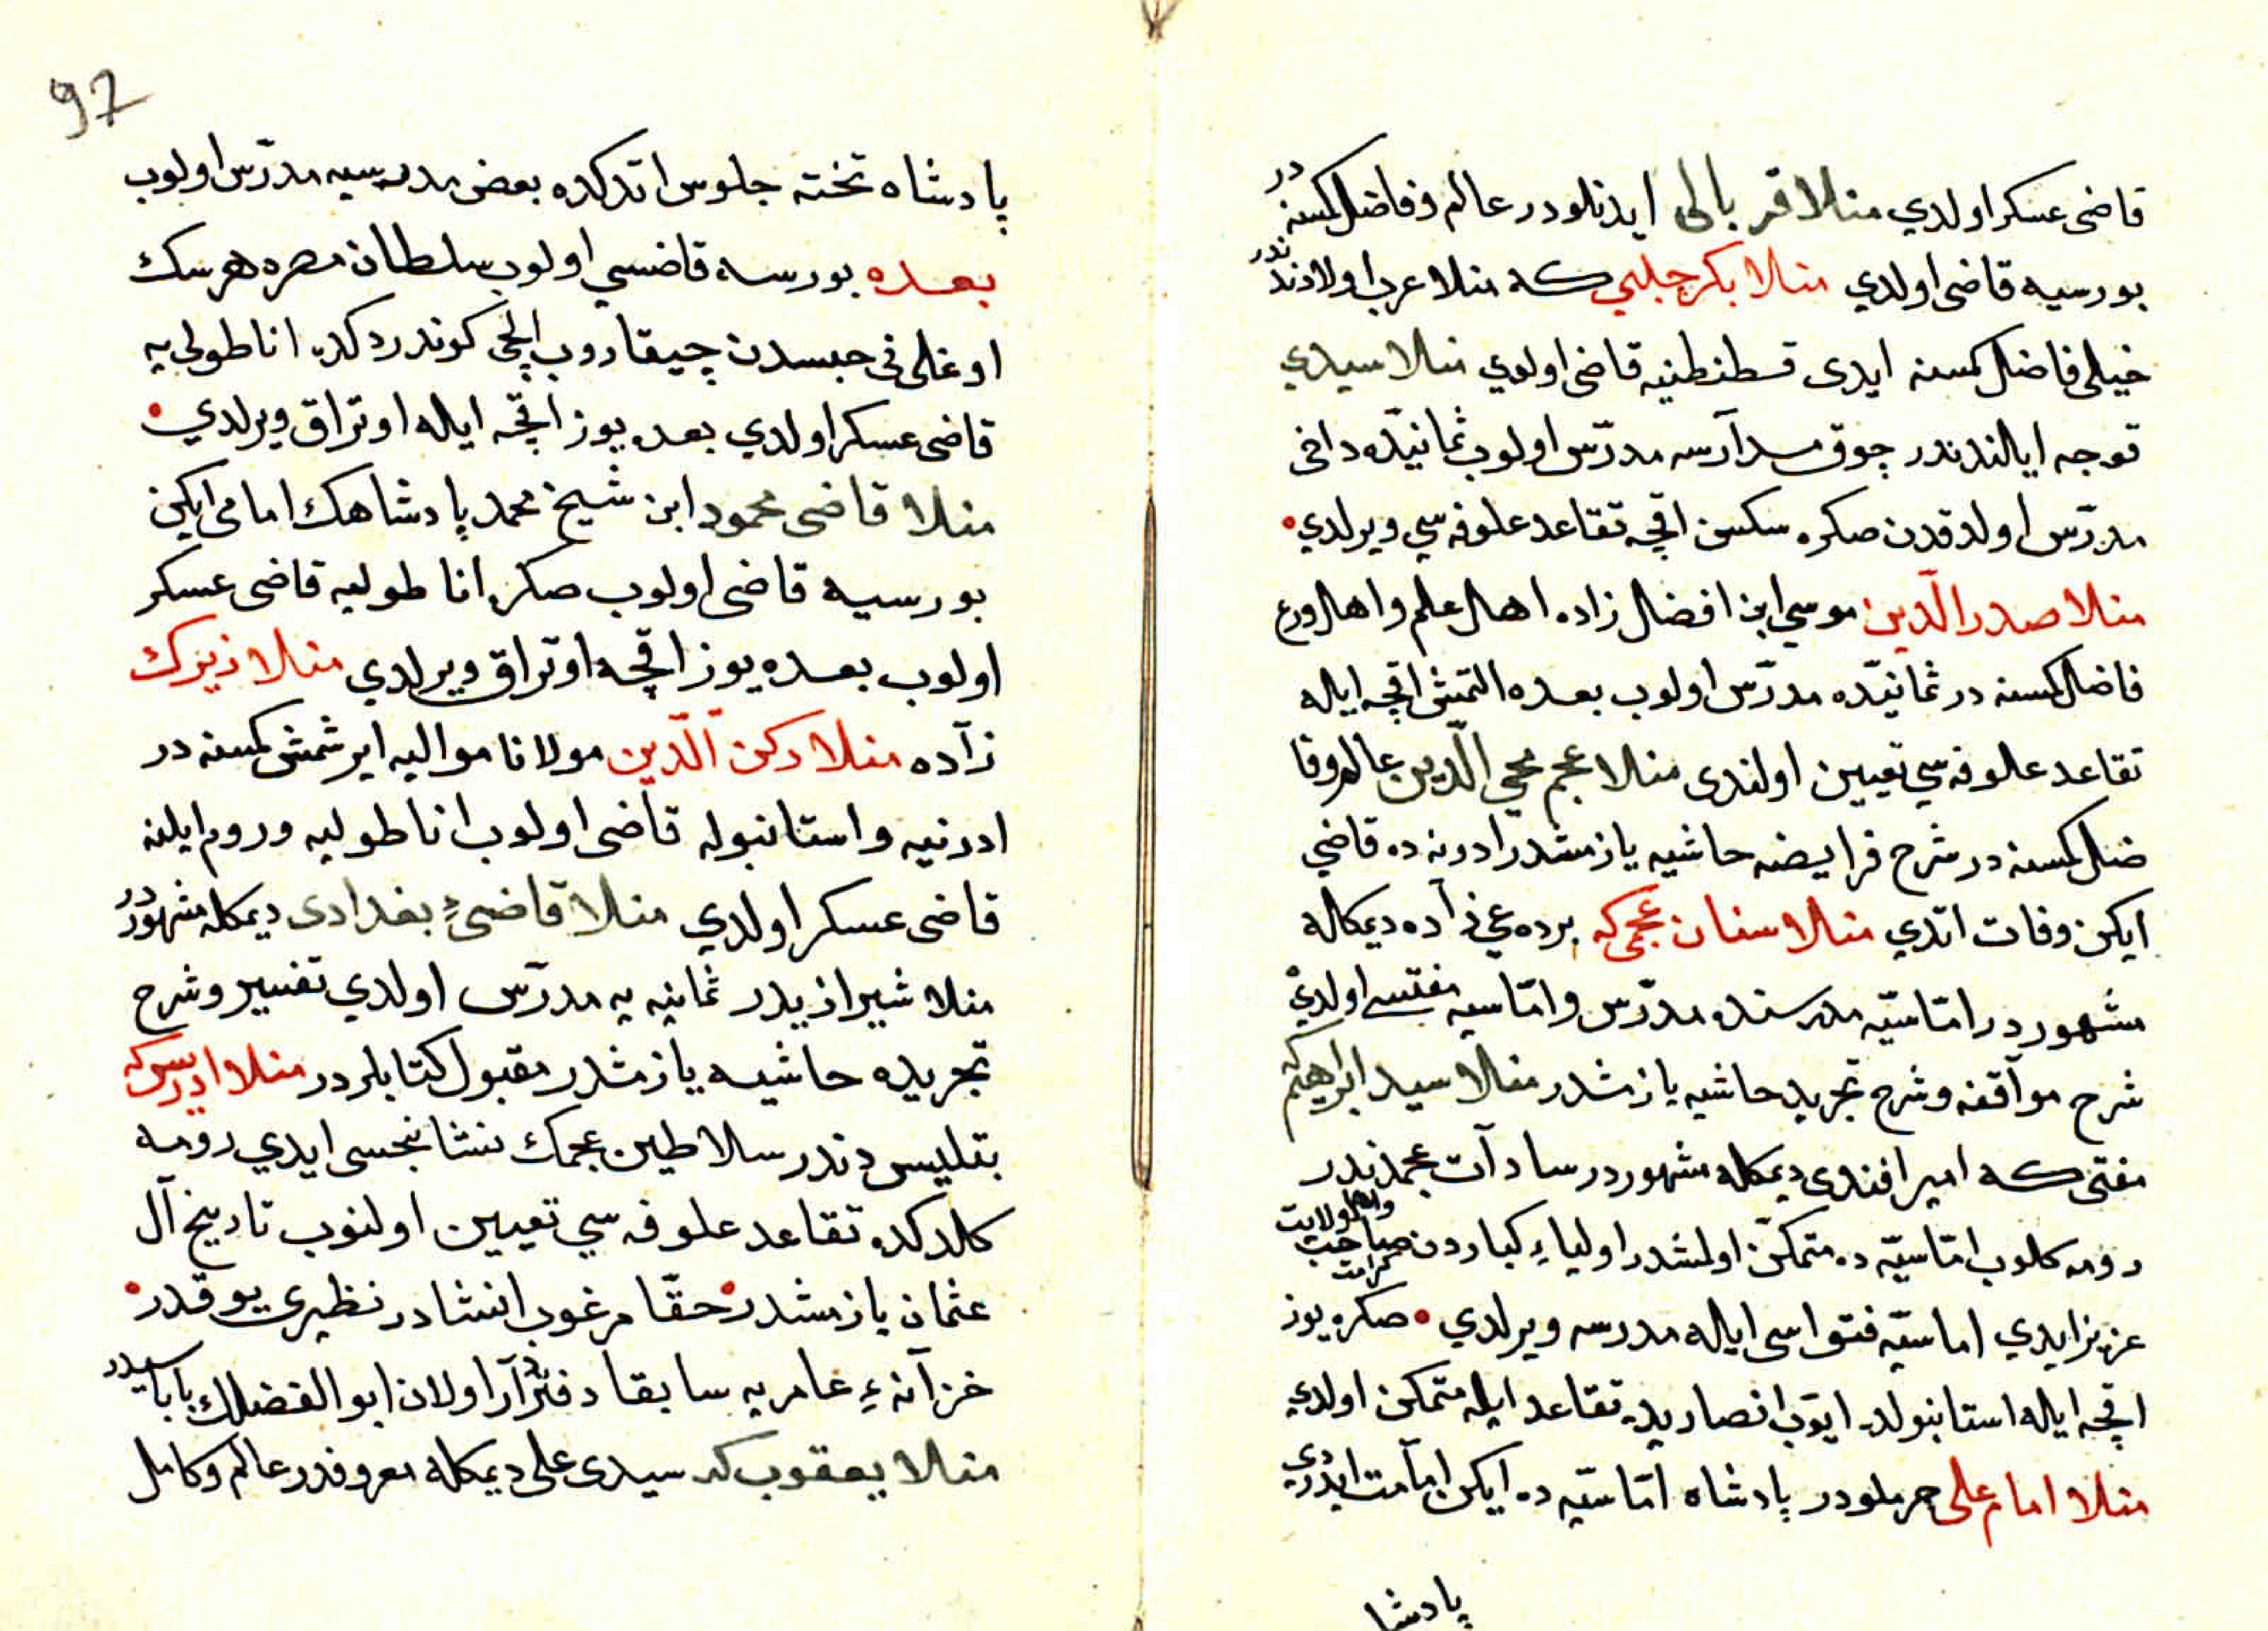 قاضی عسکر اولدي منلا قر بالی ایدنلودر عالم و فاضل کمسنه در
بورسیه قاضی اولدي منلا بکر چلبي که منلا عرب اولادندندر
خیلی فاضل کمسنه ایدی قسطنطنیه قاضی اولدي منلا سیدي
قوجه ایالندندر چوق مدآرسه مدرّس اولوب ثمانیّده داخی
مدرّس اولدقدن صکره سکسن اقچه تقاعد علوفه سي ویرلدي
منلا صدر الدّین موسي ابن افضل زاده اهل علم و اهل ورع
فاضل کمسنه در ثمانیّده مدرّس اولوب بعده التمش اقچه ایله
تقاعد علوفه سي تعیین اولندی منلا عجم محیي الدّین عالم و فا
ضل کمسنه در شرح فرایضه حاشیه یازمشدر ادرنه ده قاضي
ایکن وفات اتدي منلا سنان عجمی که برده عي زآده دیمکله
مشهور در امّاسیّه مدرسنده مدرّس و امّاسیه مفتیسي اولدي
شرح موآقفه و شرح تجرید حاشیه یازمشدر منلا سید ابراهیم که
مفتی که امیر افندی دیمکله مشهور در سادآت عجمدندر
رومه کلوب امّاسیّه ده متمکّن اولمشدر اولیاءِ کباردن صاحب کرامت و اهل ولایت
عزیز ایدي اماسیّه فتواسی ایله مدرسه ویرلدي صکره یوز
اقچه ایله استانبولده ایوّب انصاریده تقاعد ایله متمکن اولدي
منلا امام علی جرملودر پادشاه امّاسیّه ده ایکن امامت ایدردي
پادشا
97
پادشاه تخته جلوس اتدکده بعض مدرسیه مدرّس اولوب
بعده بورسه قاضسي اولوب سلطان مصره هرسك
اوغلی نی حبسدن چیقاروب ایلچی کوندردکده اناطولی یه
قاضی عسکر اولدي بعده یوز اقچه ایله اوتراق ویرلدي
منلا قاضی محمود ابن شیخ محمد پادشاهك امامی ایکن
بورسیه قاضی اولوب صکره اناطولیه قاضی عسکر
اولوب بعده یوز اقچه اوتراق ویرلدي منلا زیرك
زآده منلا رکن الدّین مولانا موالیه ایرشمش کمسنه در
ادرنیه و استانبوله قاضی اولوب اناطولیه و روم ایلنه
قاضی عسکر اولدي منلا قاضیءِ بغدادی دیمکله مشهور در
منلا شیرازیدر ثمانیه یه مدرّس اولدي تفسیر و شرح
تجریده حاشیه یازمشدر مقبول کتابلردر منلا ادریس که
بتلیسدندر سلاطین عجمك نشانجسی ایدي رومه
کلدکده تقاعد علوفه سي تعیین اولنوب تاریخ آل
عثمان یازمشدر حقّا مرغوب انشادر نظیری یوقدر
خزآنهءِ عامریه سابقا دفتردآر اولان ابو الفضلك باباسیدر
منلا یعقوب که سیدی علی دیمکله معروفدر عالم و کامل